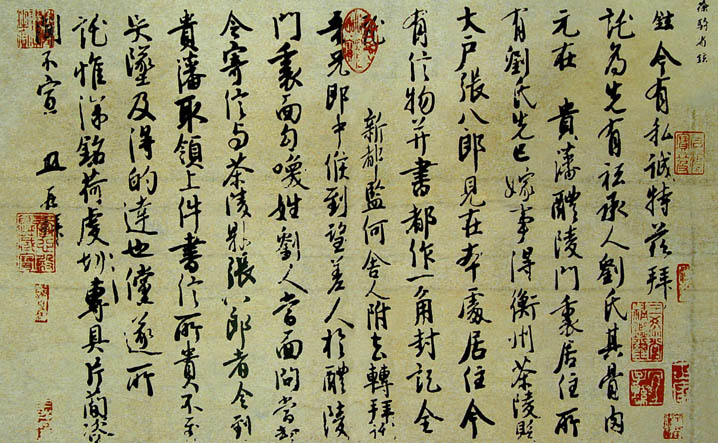 徐騎省鉉
鉉今有私誠特茲拜
託為先有祗承人劉氏其骨肉
元在 貴藩醴陵門裏居住所
有劉氏先已嫁事得衡州茶陵縣
大戶張八郎見在本處居住今
有信物并書都作一角封記全
託 新都監何舍人附去轉拜託
吾兄郎中候到望差人於醴陵
門裏面勾喚姓劉人當面問當却
令寄信与茶陵縣張八郎者令到
貴藩取領上件書信所貴不至
失墜及得的達也儻遂所
託惟深銘荷虔切〻專具片簡咨
聞不宣 鉉再拜